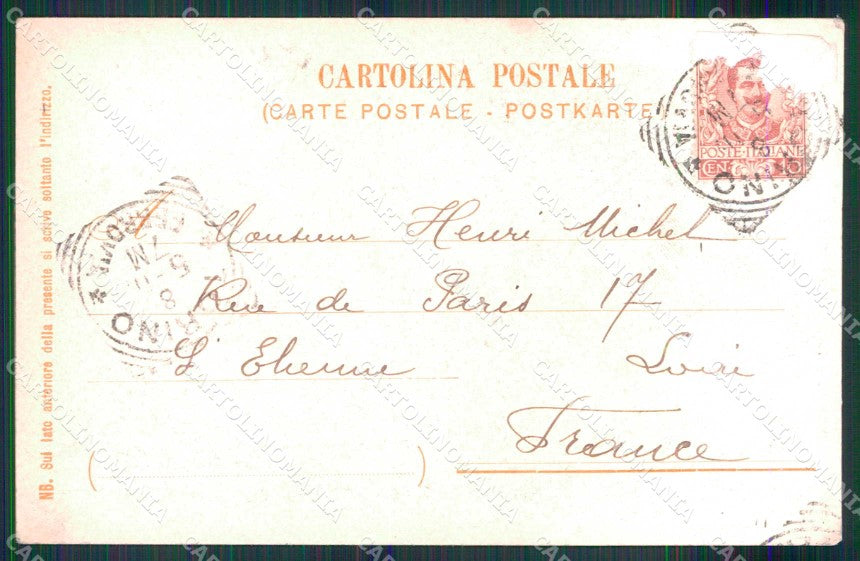 CARTOLINA POSTALE
(CARTE POSTALE - POSTKARTE
POSTE ITALIANE
CEN
Monsieur Henri Michel
Rue de Paris 17
St Etienne Loire
France
NB. Sul lato anteriore della presente si scrive soltanto l'indirizzo.
FERROVIA
RINO
8
CARTOLINOMANIA